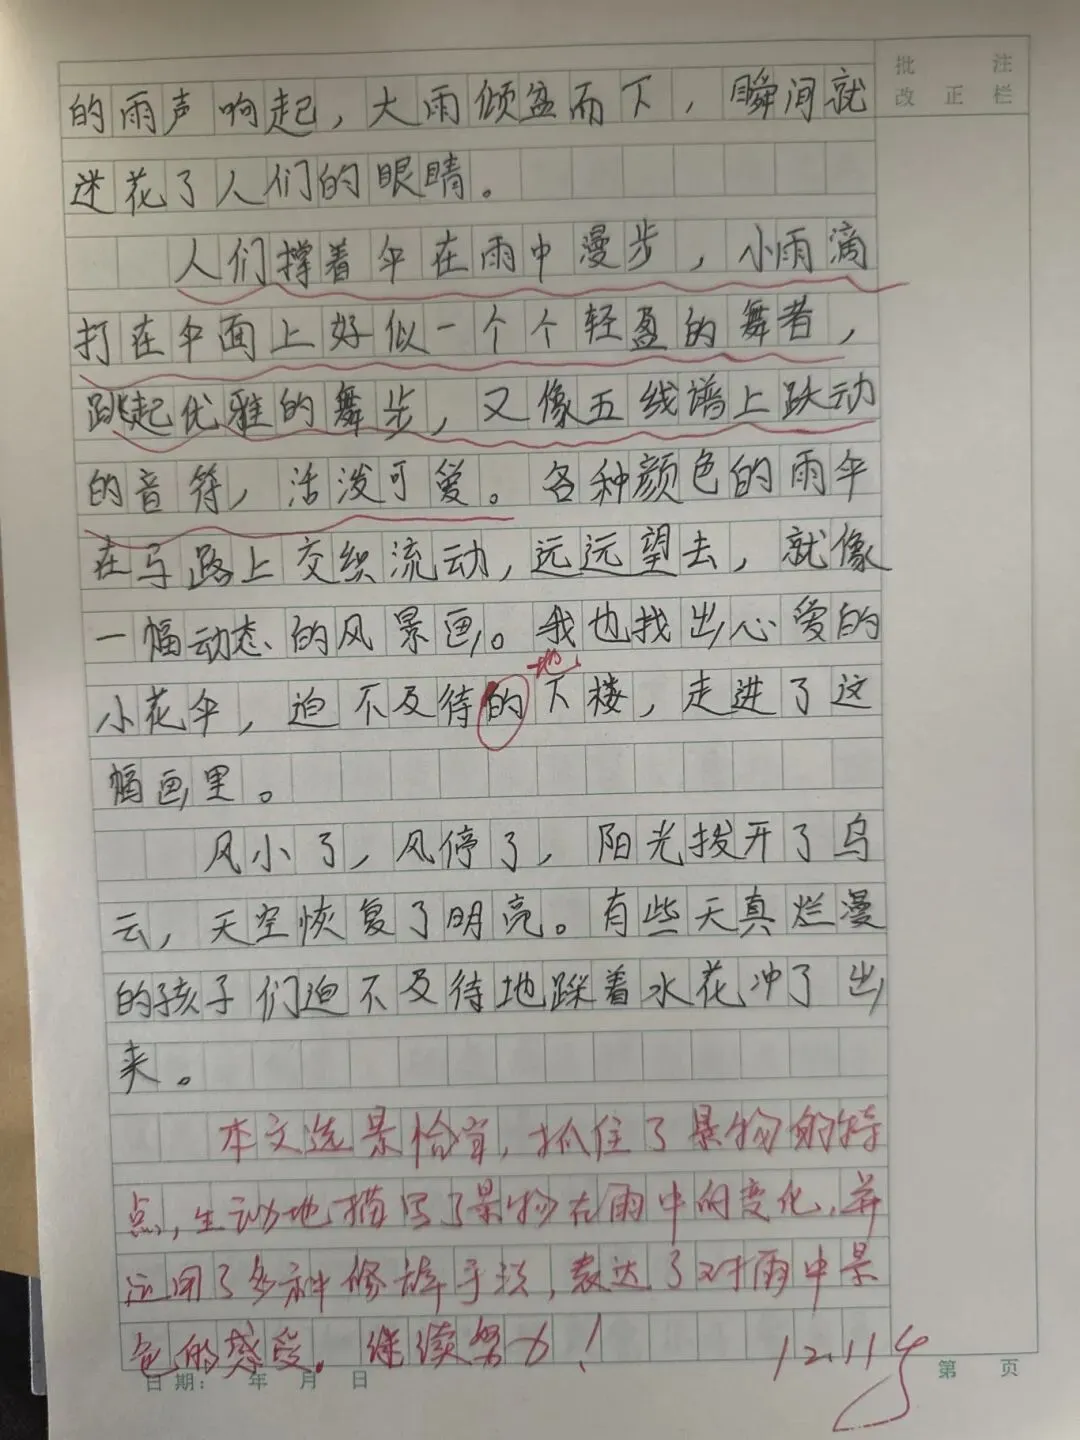 批 注
改 正 栏
的雨声响起，大雨倾盆而下，瞬间就
迷花了人们的眼睛。
人们撑着伞在雨中漫步，小雨滴
打在伞面上好似一个个轻盈的舞者，
跳起优雅的舞步，又像五线谱上跃动
的音符，活泼可爱。各种颜色的雨伞
在马路上交织流动，远远望去，就像
一幅动态的风景画。我也找出心爱的
地
小花伞，迫不及待的下楼，走进了这
幅画里。
风小了，风停了，阳光拨开了乌
云，天空恢复了明亮。有些天真烂漫
的孩子们迫不及待地踩着水花冲了出
来。
本文选景恰宜，抓住了景物的特
点，生动地描写了景物在雨中的变化，并
运用了多种修辞手法，表达了对雨中景
色的感受。继续努力！ 12.11
日期： 年 月 日
第 页